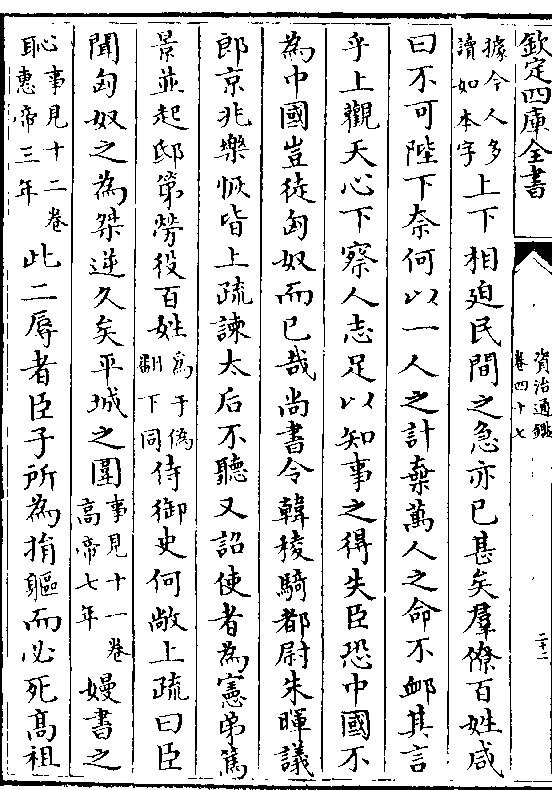 欽定四庫全書
資治通鑑
卷四十七
二十二
據今人多
讀如本字上下相廹民間之急亦已甚矣羣僚百姓咸
曰不可陛下奈何以一人之計棄萬人之命不衈其言
乎上觀天心下察人志足以知事之得失臣恐中國不
為中國豈徒匈奴而已哉尚書令韓稜騎都尉朱暉議
郎京兆樂恢皆上疏諫太后不聽又詔使者為憲弟篤
景並起邸第勞役百姓為于偽
翻下同侍御史何敞上疏曰臣
聞匈奴之為桀逆久矣平城之圍事見十一卷
高帝七年嫚書之
恥事見十二卷
惠帝三年此二辱者臣子所為捐軀而必死高祖